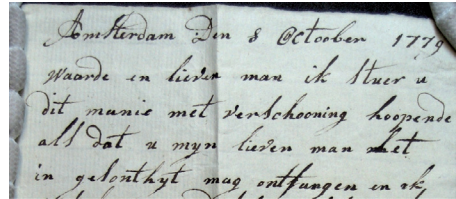 Amsterdam Den 8 Octoober 1779
waarde en lieven man ik stuer u
dit munie met verschooning hoopende
als dat u myn lieven man het
in gesonthyt mag ontfangen en ik